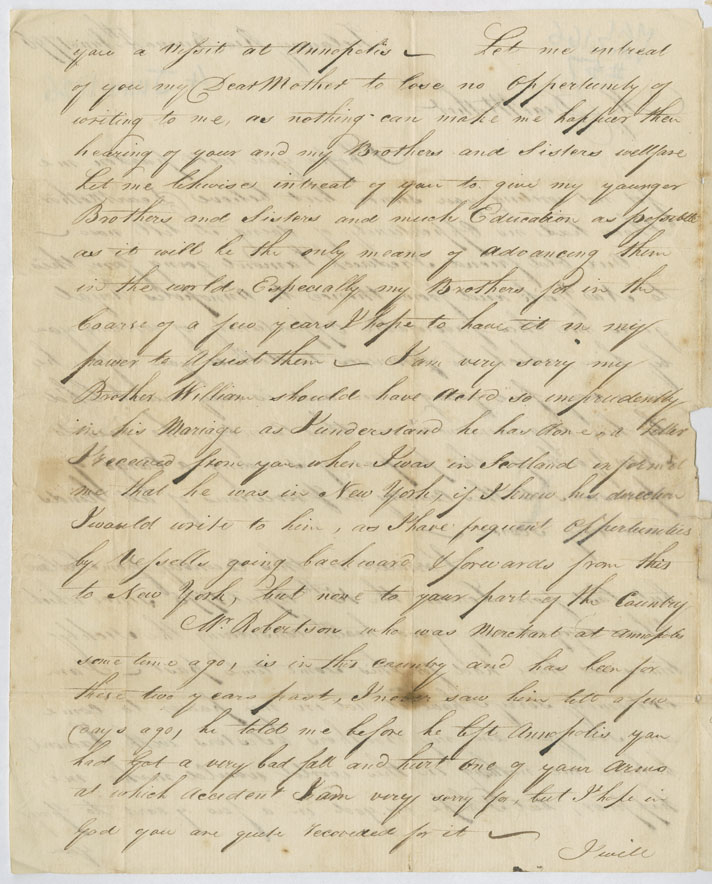 you a Vissit at Annopolis — Let me intreat
of you my Dear Mother to lose no oppertunity of
writing to me, as nothing can make me happier then
hearing of your and my Brothers and Sisters wellfare
Let me likewise intreat of you to give my younger
Brothers and Sisters and much Education as possible
as it will be the only means of advancing them
in the world, Especially my Brothers, for in the
Coarse of a few years I hope to have it in my
power to Assist them — I am very sorry my
Brother William should have Acted so imprudently
in his Mariage as I understand he has done, a Letter
I received from you when I was in Scotland informed
me that he was in New York, if I knew his direction
I would write to him, as I have frequent oppertunities
by Vessells going backward & forwards from this
to New York, but none to your part of the Country
Mr. Robertson who was Merchant at Annopolis
some time ago, is in this country and has been for
these two years past, I never saw him till a few
days ago, he told me before he left Annopolis you
had Got a very bad fall and hurt one of your Arms
at which accident I am very sorry for, but I hope in
God you are quite recovered for it —
I will